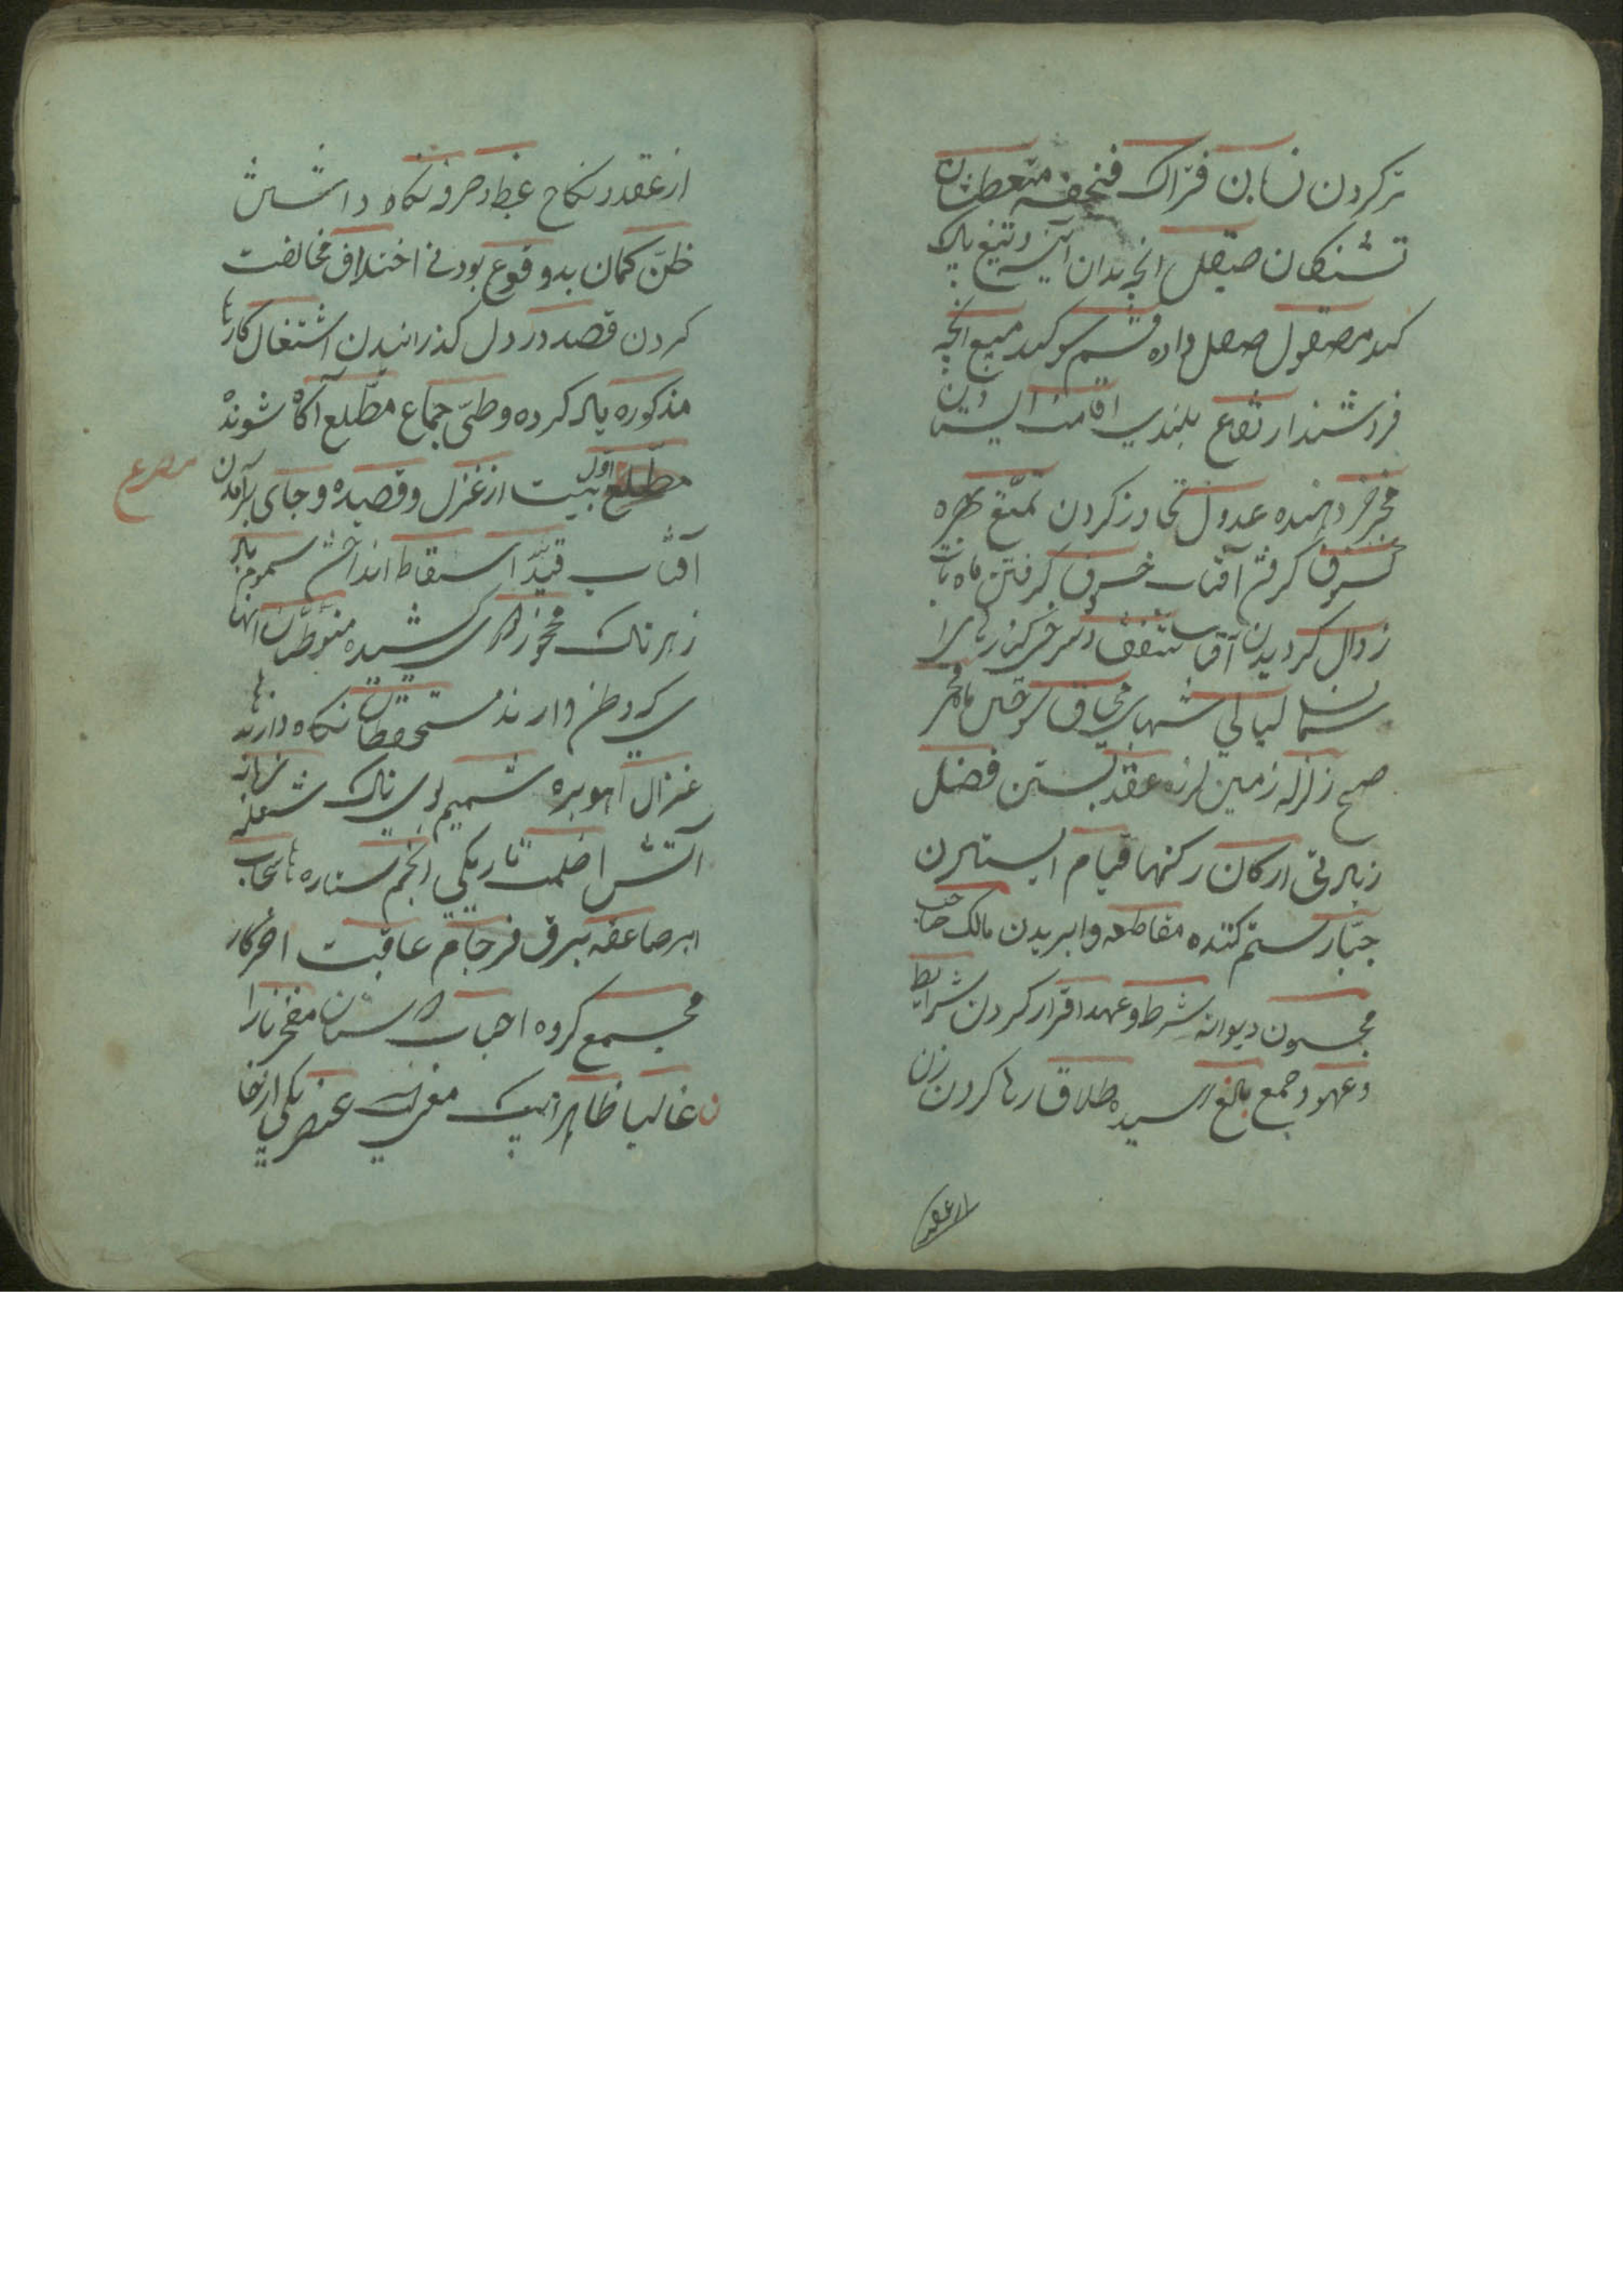 تر کردن نسابن فتراک فنجفه متعطشان
تشنکان صیقل انچه بدان آینه و تیغ پاک
کند مصقول صیقل داده قسم سوکند مبیع انچه
فروشند ارتفاع بلندی اقامت ایستادن
مخبر خبر دهنده عدول تجاوز کردن تمتّع بهره
کسوف کرفتن آفتاب خسوف کرفتن ماهتاب
زوال کردیدن آفتاب
لیالی شبهای محاق سوختن ماه فجر
صبح زلزله زمین لرزه عقد بستن فضل
زیادتی ارکان رکنها قیام ایستادن
جبّار ستم کننده مقاطعه وا بریدن مالک صاحب
مجنون دیوانه شرط و عهد اقرار کردن شرایط
و عهود جمع بالغ رسیده طلاق رها کردن زن
از عقد
از عقد و نکاح غبط و صرفه نکاه داشتن
ظنّ کمان بد وقوع بودنی اختلاف مخالفت
کردن قصد در دل کذرانیدن اشتغال کارها
مذکوره یاد کرده وطیّ جماع مطّلع آکاه شونده
مطلع اوّل بیت از غزل و قصیده و جای برآمدن
مصرع
آفتاب قید بند اسقاط انداختن سموم باد
زهرناک متوطّنان آنها
ی که وطن دارند مستحفظان نکاه دارنده
ها
غزال آهو بره شمیم بوی ناک شعله زبانه
آتش ظلمت تاریکی انجم ستاره ها سحاب
ابر صاعقه برق فرجام عاقبت آخر کار
مجمع کروه احباب دوستان
غالبا ظاهرا عنصر یکی از